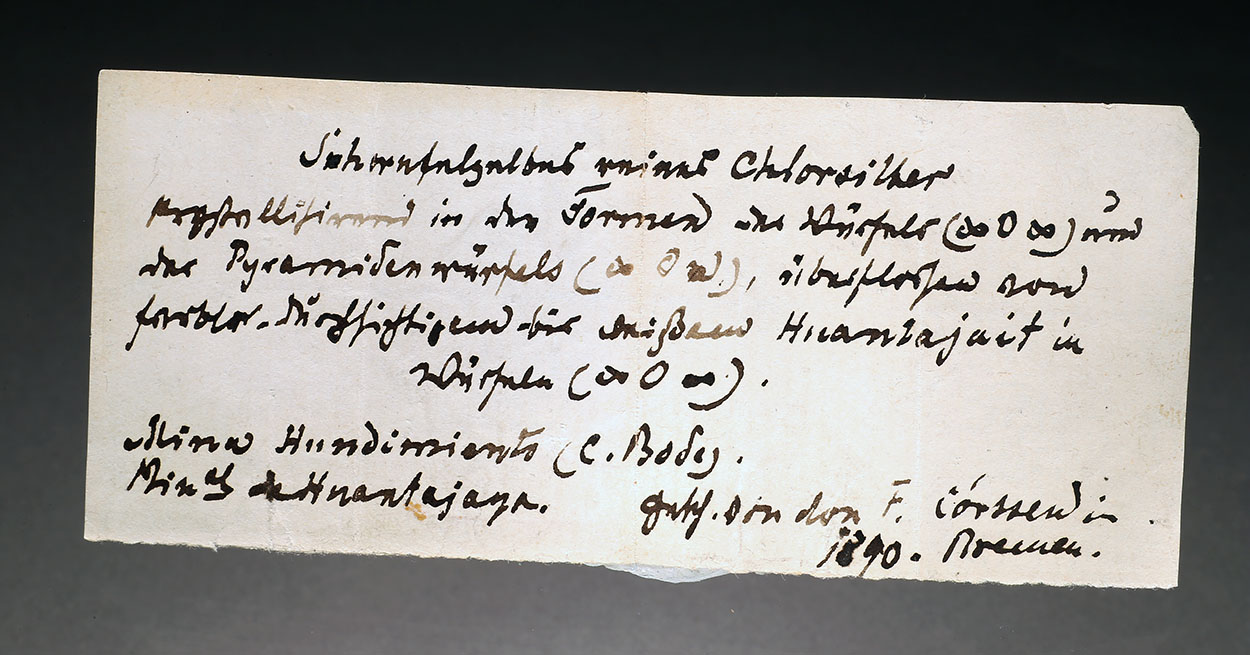 Schwefelgelbes reines Chlorsilber
krystallisirend in den Formen des Würfels (∞O∞) und
des Pyramidenwürfels (∞On), überflossen von
farblos-durchsichtigem bis weißem Huantajait in
Würfeln (∞O∞).
Mina Hundimiento (C. Bode).
Minas de Huantajaya.
gesch. von don F. Corssen in
1890. Bremen.